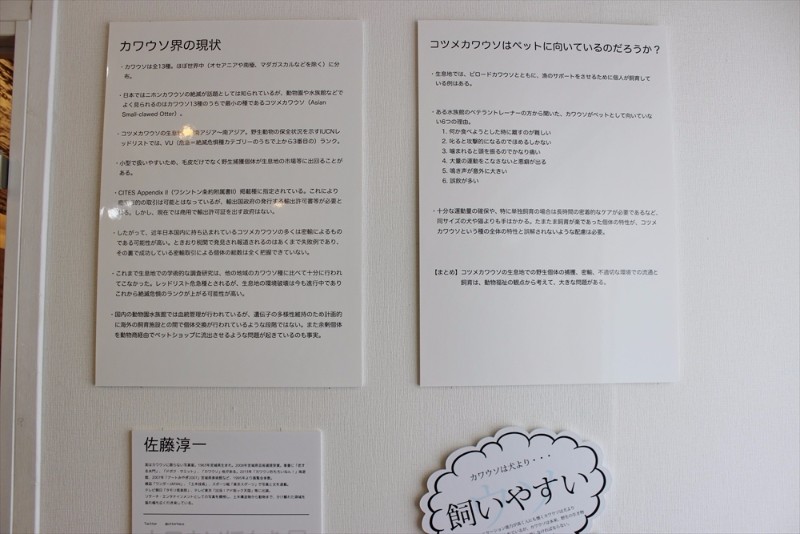 カワウソ界の現状
・カワウソは全13種。ほぼ世界中（オセアニアや南極、マダガスカルなどを除く）に分
布。
・日本ではニホンカワウソの絶滅が話題としては知られているが、動物園や水族館などで
よく見られるのはカワウソ13種のうちで最小の種であるコツメカワウソ（Asian
Small-clawed Otter）。
・コツメカワウソの生息 アジア〜南アジア。野生動物の保全状況を示すIUCNレ
ッドリストでは、VU（危急＝絶滅危惧種カテゴリーのうちで上から3番目の）ランク。
・小型で扱いやすいため、毛皮だけでなく野生捕獲個体が生息地の市場等に出回ることが
ある。
・CITES Appendix II（ワシントン条約附属書II）掲載種に指定されている。これにより
的の取引は可能とはなっているが、輸出国政府の発行する輸出許可書等が必要と
る。しかし、現在では商用で輸出許可証を出す政府はない。
・したがって、近年日本国内に持ち込まれているコツメカワウソの多くは密輸によるもの
である可能性が高い。ときおり税関で発見され報道されるのはあくまで失敗例であり、
その裏で成功している密輸取引による個体の総数は全く把握できていない。
・これまで生息地での学術的な調査研究は、他の地域のカワウソ種に比べて十分に行われ
てこなかった。レッドリスト危急種とされるが、生息地の環境破壊は今も進行中であり
これから絶滅危惧のランクが上がる可能性が高い。
・国内の動物園水族館では血統管理が行われているが、遺伝子の多様性維持のため計画的
に海外の飼育施設との間で個体交換が行われているような段階ではない。また余剰個体
を動物商経由でペットショップに流出させるような問題が起きているのも事実。
コツメカワウソはペットに向いているのだろうか？
・生息地では、ビロードカワウソとともに、漁のサポートをさせるために個人が飼育して
いる例はある。
・ある水族館のベテラントレーナーの方から聞いた、カワウソがペットとして向いていな
い6つの理由。
1. 何か食べようとした時に離すのが難しい
2. 叱ると攻撃的になるのでほめるしかない
3. 噛まれると頭を振るのでかなり痛い
4. 大量の運動をこなさないと悪癖が出る
5. 鳴き声が意外に大きい
6. 誤飲が多い
・十分な運動量の確保や、特に単独飼育の場合は長時間の密着的なケアが必要であるなど、
同サイズの犬や猫よりも手はかかる。たまたま飼育が楽であった個体の例が、コツメ
カワウソという種の全体の特性と誤解されないような配慮は必要。
【まとめ】コツメカワウソの生息地での野生個体の捕獲、密輸、不適切な環境での流通と
飼育は、動物福祉の観点から考えて、大きな問題がある。
佐藤淳一
カワウソは犬より・・・
飼いやすい